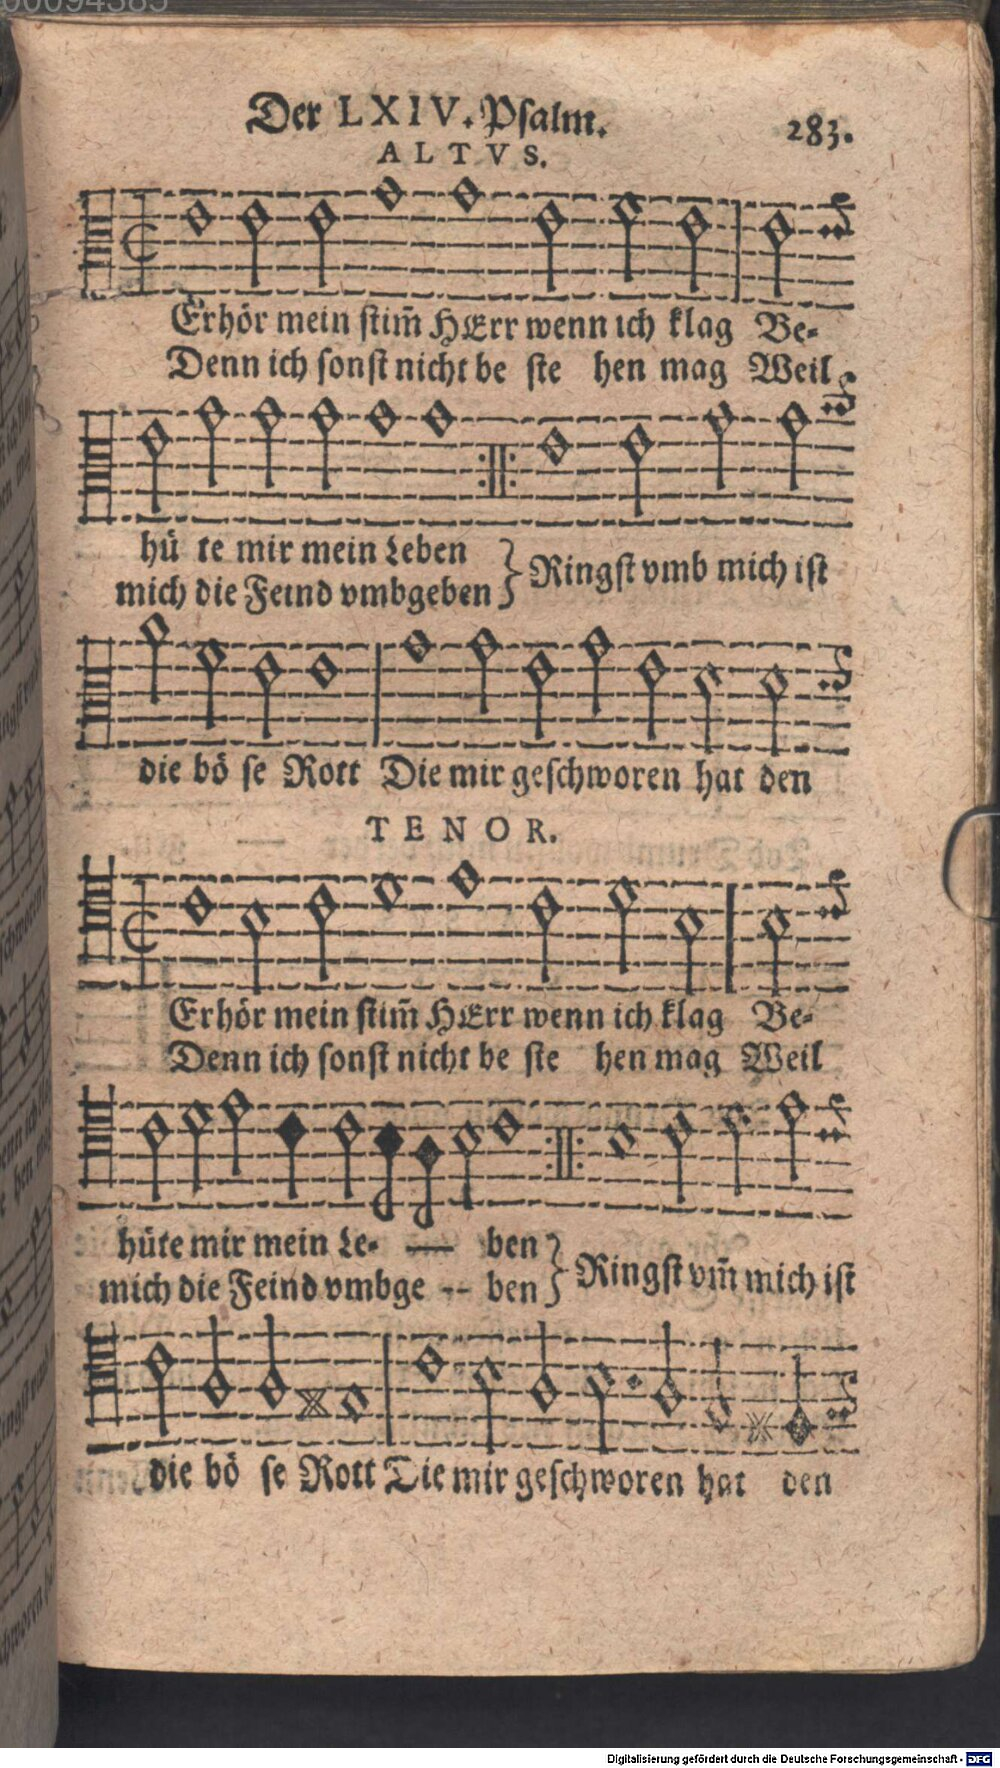 00094385
Der LXIV. Psalm. 283.
ALTVS.
Erhör mein stim̃ HErr wenn ich klag Be-
Denn ich sonst nicht be ste hen mag Weil
hü te mir mein Leben
mich die Feind vmbgeben } Ringst vmb mich ist
die bö se Rott Die mir geschworen hat den
TENOR.
Erhör mein stim̃ HErr wenn ich klag Be-
Denn ich sonst nicht be ste hen mag Weil
hüte mir mein Le- — ben
mich die Feind vmbge -- ben } Ringst vm̃ mich ist
die bö se Rott Die mir geschworen hat den
Digitalisierung gefördert durch die Deutsche Forschungsgemeinschaft - DFG